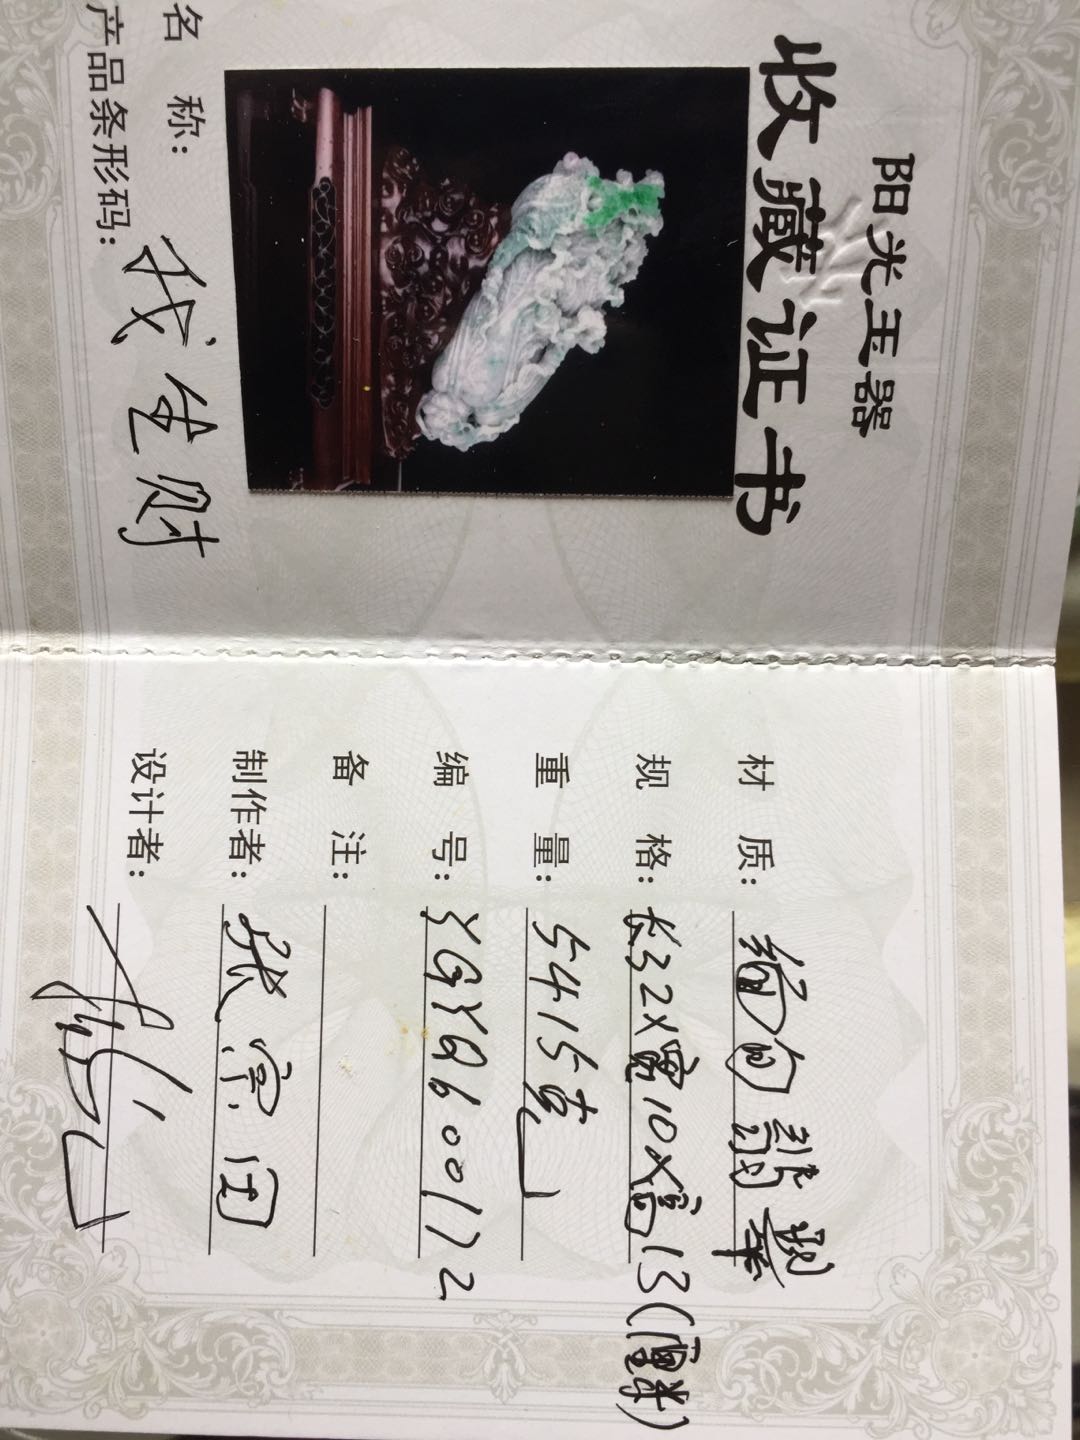 阳光玉器
收藏证书
名称：
我生财
产品条形码：
材质：缅甸翡翠
规格：长32x宽10x高13(厘米)
重量：5415克
编号：YGYQ600172
备注：
制作者：张宗国
设计者：